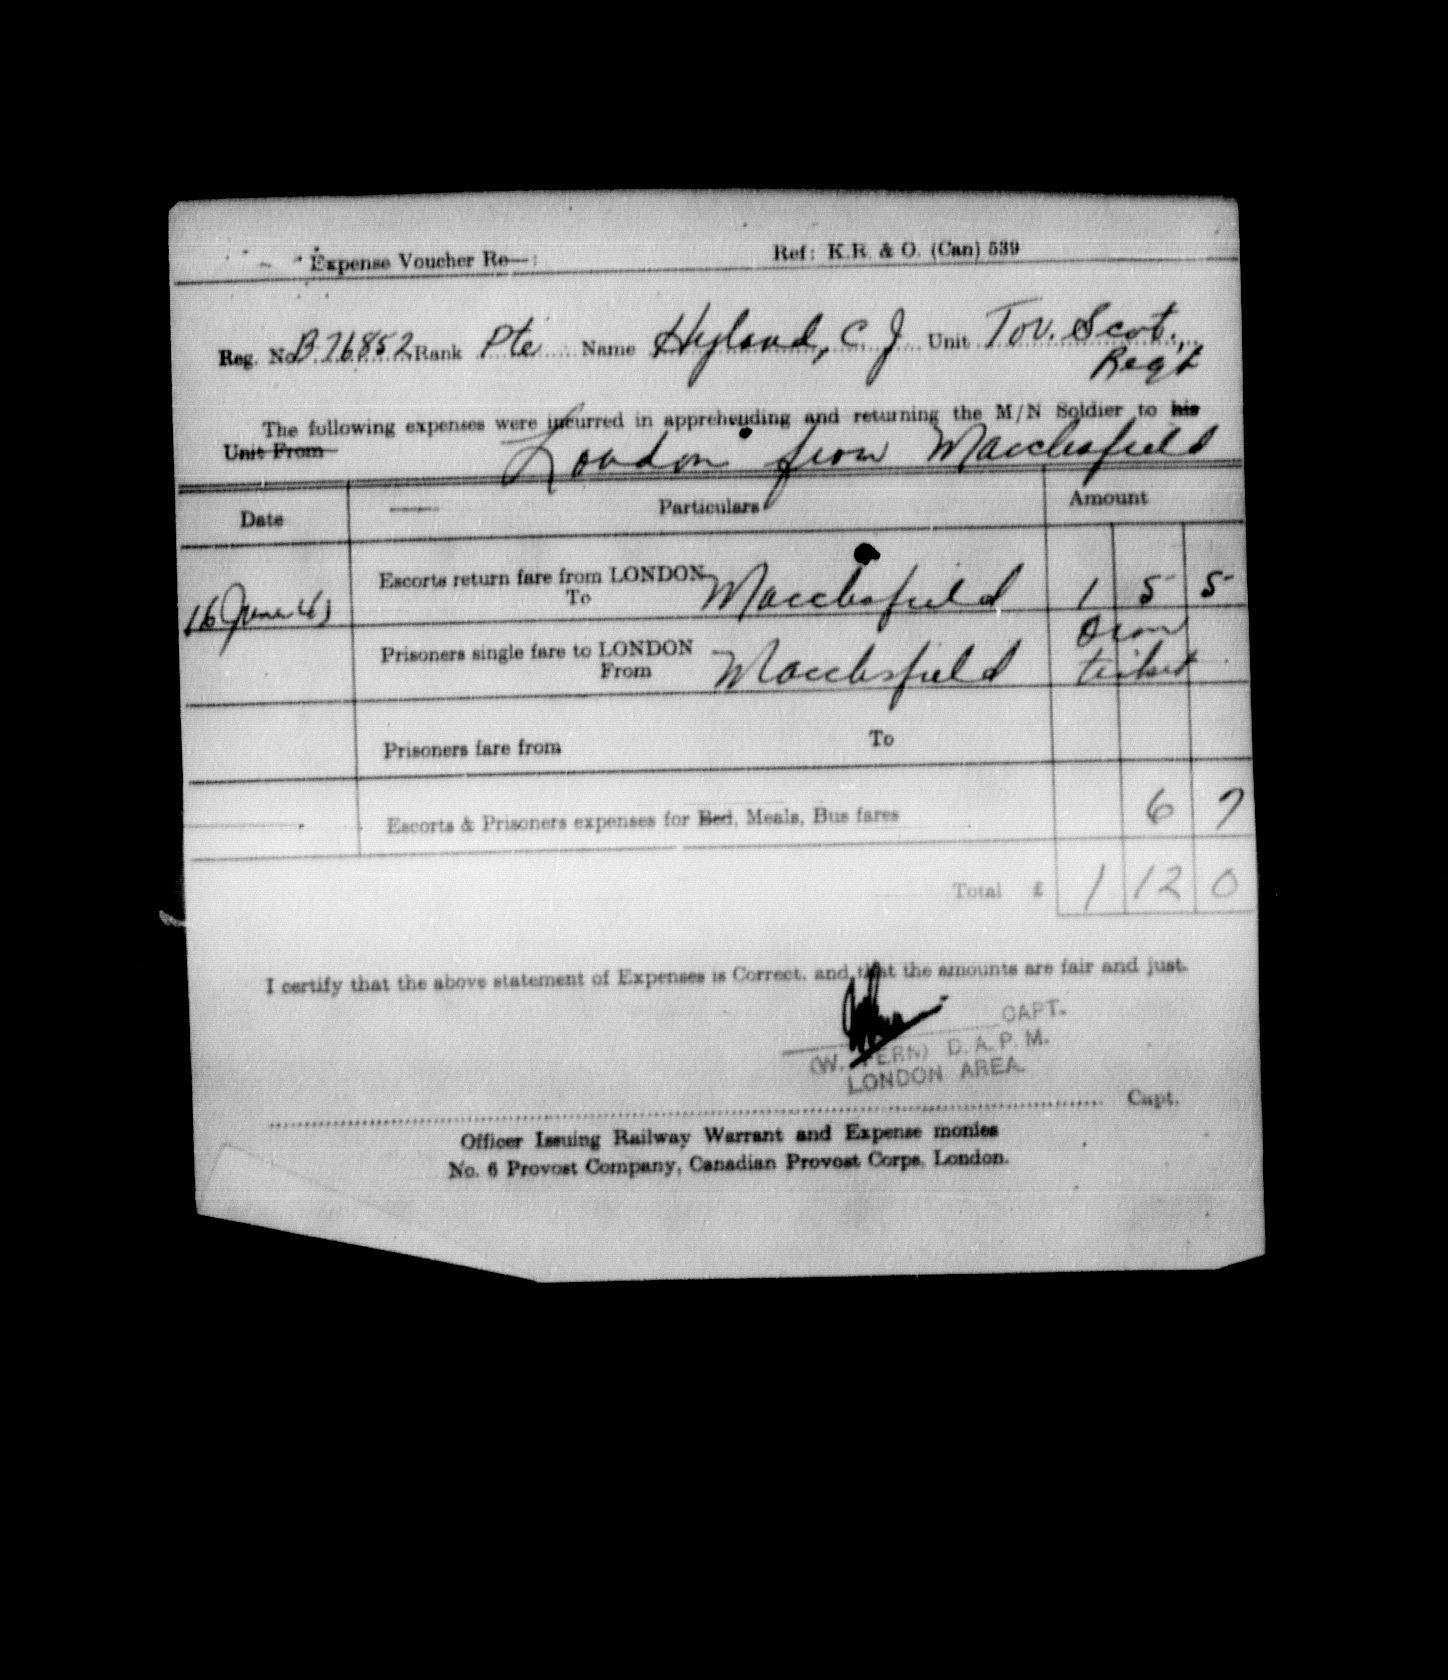 Expense Voucher Re—: Ref: K.R. & O. (Can) 539
Reg. No B.76852 Rank Pte Name Hyland, C J Unit Tor. Scot.
Regt
The following expenses were incurred in apprehending and returning the M/N Soldier to his
Unit From London from Macclesfield
Date Particulars Amount
Escorts return fare from LONDON
16 June 43 To Macclesfield 1 5 5
Prisoners single fare to LONDON Own
From Macclesfield ticket
Prisoners fare from To
Escorts & Prisoners expenses for Bed, Meals, Bus fares 6 7
Total £ 1 12 0
I certify that the above statement of Expenses is Correct, and that the amounts are fair and just.
CAPT.
(W. FERN) D.A.P.M.
LONDON AREA.
Capt.
Officer Issuing Railway Warrant and Expense monies
No. 6 Provost Company, Canadian Provost Corps, London.